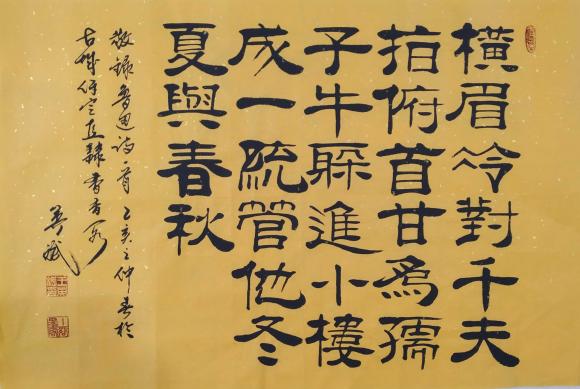 橫眉冷對千夫
指俯首甘為孺
子牛躲進小樓
成一統管他冬
夏與春秋
敬錄魯迅詩一首 乙亥之仲春於
古城保定直隸書香